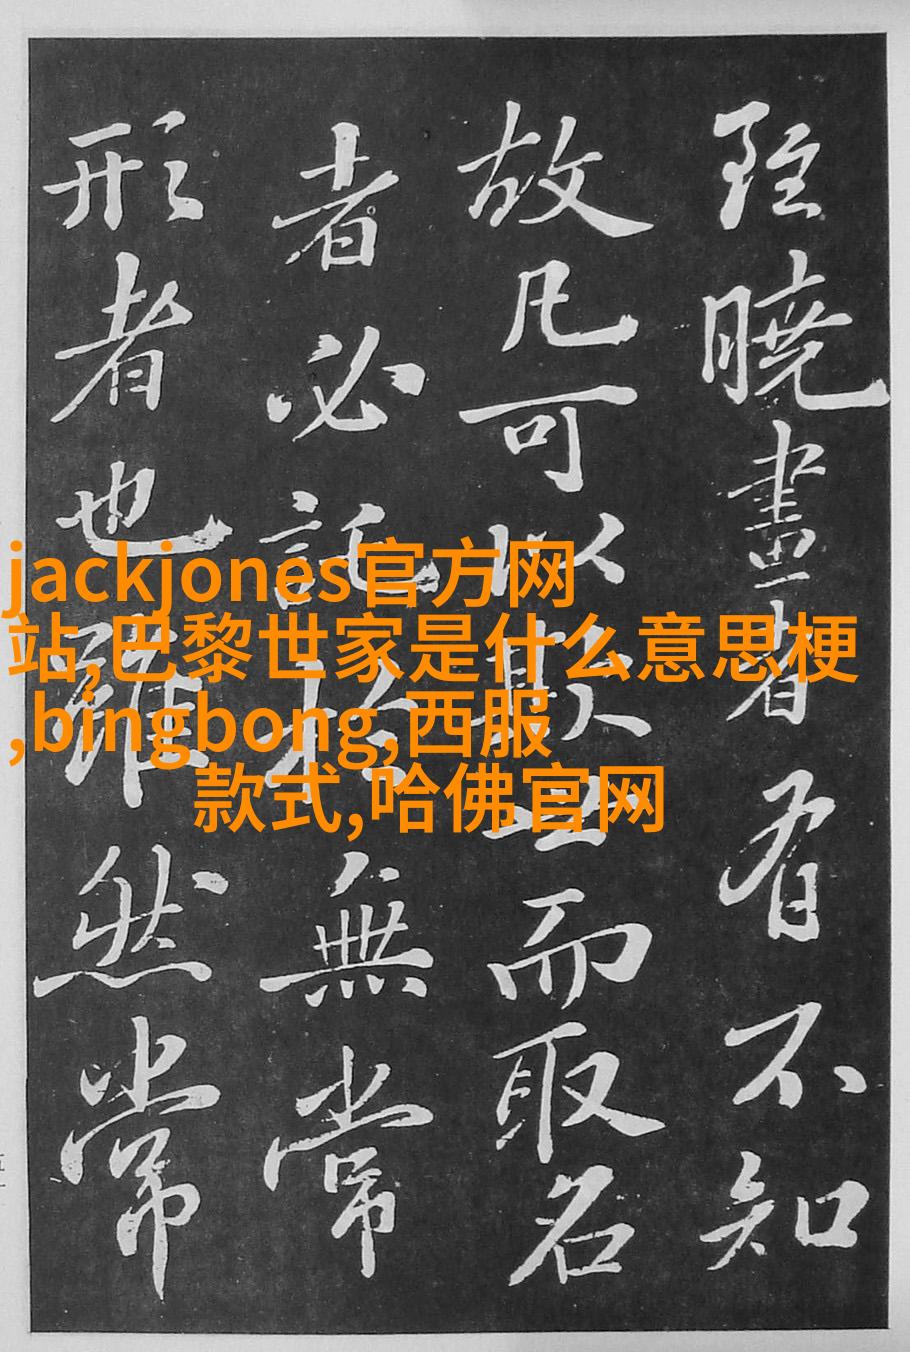 雖曉畫者有不知
故凡可以欺世而取名
者必託於無常
形者也雖然常
jackjones官方网
站,巴黎世家是什么意思梗
,bingbong,西服
款式,哈佛官网